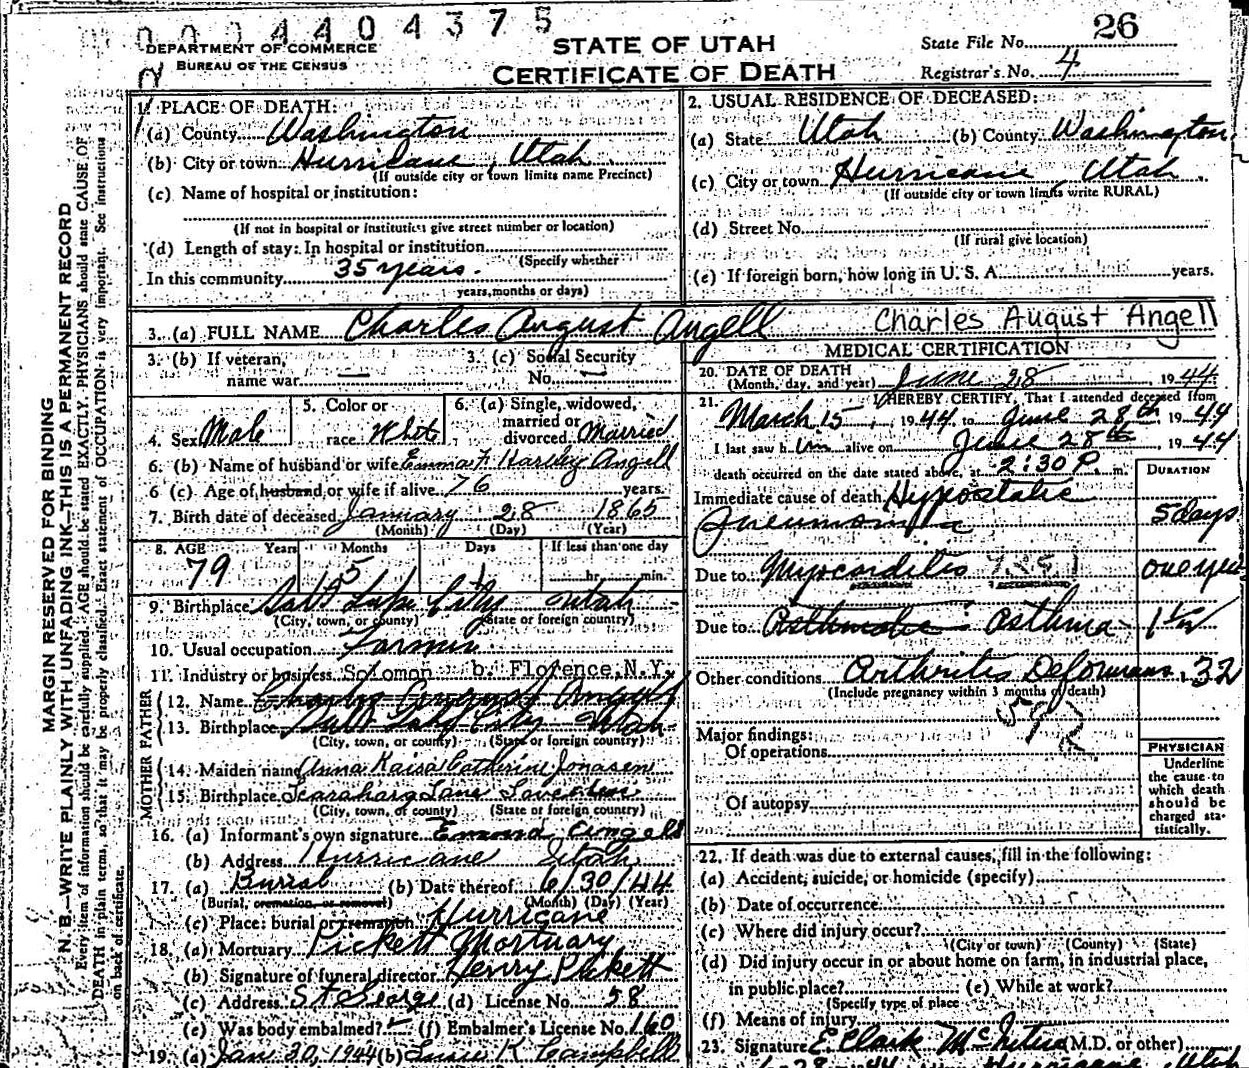 0004404375
DEPARTMENT OF COMMERCE
BUREAU OF THE CENSUS
STATE OF UTAH
CERTIFICATE OF DEATH
State File No. 26
Registrar's No. 4
MARGIN RESERVED FOR BINDING
N. B.—WRITE PLAINLY WITH UNFADING INK—THIS IS A PERMANENT RECORD
Every item of information should be carefully supplied. AGE should be stated EXACTLY. PHYSICIANS should state CAUSE OF
DEATH in plain terms, so that it may be properly classified. Exact statement of OCCUPATION is very important. See instructions
on back of certificate.
1. PLACE OF DEATH:
(a) County Washington
(b) City or town Hurricane, Utah
(If outside city or town limits name Precinct)
(c) Name of hospital or institution:
(If not in hospital or institution give street number or location)
(d) Length of stay: In hospital or institution
(Specify whether
In this community 35 years.
years, months or days)
2. USUAL RESIDENCE OF DECEASED:
(a) State Utah (b) County Washington
(c) City or town Hurricane, Utah.
(If outside city or town limits write RURAL)
(d) Street No.
(If rural give location)
(e) If foreign born, how long in U. S. A. years.
3. (a) FULL NAME Charles August Angell Charles August Angell
3. (b) If veteran, name war —
3. (c) Social Security No. —
4. Sex Male
5. Color or race White
6. (a) Single, widowed, married or divorced Married
6. (b) Name of husband or wife Emma F. Hartley Angell
6 (c) Age of husband or wife if alive 76 years.
7. Birth date of deceased January 28 1865
(Month) (Day) (Year)
8. AGE Years Months Days If less than one day
79 5 hr. min.
9. Birthplace Salt Lake City Utah
(City, town, or county) (State or foreign country)
10. Usual occupation Farmer
11. Industry or business Solomon b. Florence, N.Y.
FATHER
12. Name Charles August Angell
13. Birthplace Salt Lake City Utah
(City, town, or county) (State or foreign country)
MOTHER
14. Maiden name Anna Kaisa Catherine Jonasen
15. Birthplace
(City, town, or county) (State or foreign country)
16. (a) Informant's own signature Angell
(b) Address Hurricane Utah
17. (a) Burial (b) Date thereof 6/30/44
(Burial, cremation, or removal) (Month) (Day) (Year)
(c) Place: burial or cremation Hurricane
18. (a) Mortuary Pickett Mortuary
(b) Signature of funeral director Henry Pickett
(c) Address St George (d) License No. 58
(e) Was body embalmed? (f) Embalmer's License No. 160
19. (a) Jan 30, 1944 (b) K Campbell
MEDICAL CERTIFICATION
20. DATE OF DEATH
(Month, day, and year) June 28, 1944
21. I HEREBY CERTIFY, That I attended deceased from
March 15, 1944, to June 28th, 1944
I last saw him alive on June 28th, 1944
death occurred on the date stated above, at 2:30 P. m.
DURATION
Immediate cause of death Hypostatic
Pneumonia 5 days
Due to Myocarditis one year
Due to Asthmatic: Asthma
Other conditions Arthritis Deformans, 32
(Include pregnancy within 3 months of death)
Major findings:
Of operations
Of autopsy
PHYSICIAN
Underline
the cause to
which death
should be
charged sta-
tistically.
22. If death was due to external causes, fill in the following:
(a) Accident, suicide, or homicide (specify)
(b) Date of occurrence
(c) Where did injury occur?
(City or town) (County) (State)
(d) Did injury occur in or about home on farm, in industrial place,
in public place? (e) While at work?
(Specify type of place
(f) Means of injury
23. Signature E. Clark McIntire (M.D. or other)
Hurricane, Utah